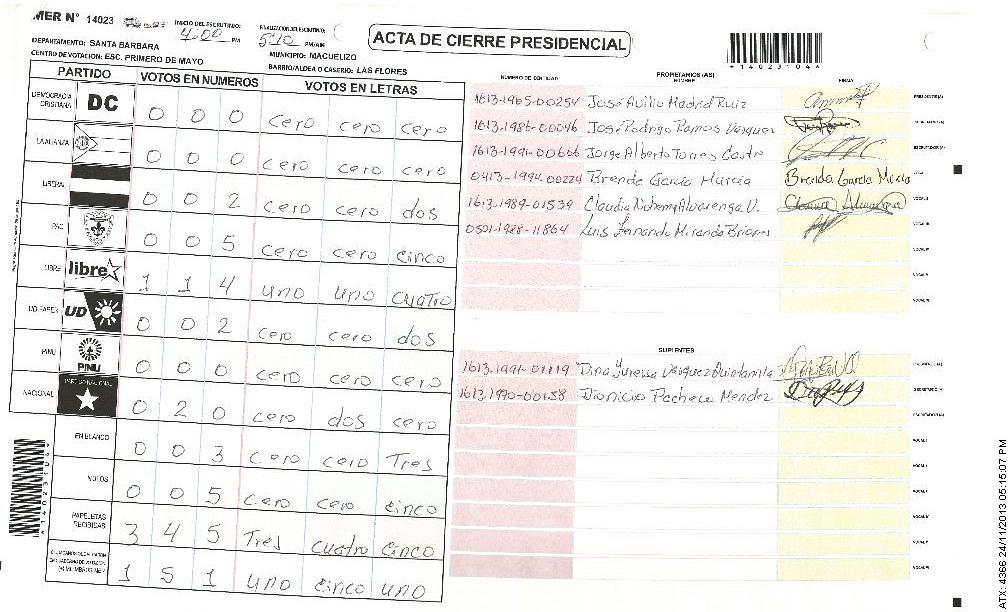 MER N° 14023
INICIO DEL ESCRUTINIO: 4:00 PM
FINALIZACION DEL ESCRUTINIO: 5:10 PM/AM
ACTA DE CIERRE PRESIDENCIAL
*14023104*
DEPARTAMENTO: SANTA BARBARA
MUNICIPIO: MACUELIZO
CENTRO DE VOTACION: ESC. PRIMERO DE MAYO
BARRIO/ALDEA O CASERIO: LAS FLORES
PARTIDO VOTOS EN NUMEROS VOTOS EN LETRAS
DEMOCRACIA CRISTIANA DC 0 0 0 cero cero cero
LA ALIANZA 0 0 0 cero cero cero
LIBERAL 0 0 2 cero cero dos
PAC 0 0 5 cero cero cinco
LIBRE libre 1 1 4 uno uno cuatro
UD-FAPER UD 0 0 2 cero cero dos
PINU PINU 0 0 0 cero cero cero
NACIONAL PARTIDO NACIONAL 0 2 0 cero dos cero
EN BLANCO 0 0 3 cero cero Tres
NULOS 0 0 5 cero cero cinco
PAPELETAS RECIBIDAS 3 4 5 Tres cuatro cinco
1 5 1 uno cinco uno
NUMERO DE IDENTIDAD PROPIETARIOS (AS) NOMBRE FIRMA
1613-1965-00254 José Avilio Madrid Ruiz PRESIDENTE (A)
1613-1986-00046 José Rodrigo Ramos Vasquez SECRETARIO (A)
1613-1991-00606 Jorge Alberto Torres Castro ESCRUTADOR (A)
0413-1994-00224 Brenda Garcia Murcia Brenda Garcia Murcia VOCAL I
1613-1989-01539 Claudia Nohemy Alvarenga V. VOCAL II
0501-1988-11864 Luis Fernando Miranda Briones VOCAL III
VOCAL IV
VOCAL V
VOCAL VI
SUPLENTES
1613-1991-01119 Dina Yuressa Vasquez Quintanilla PRESIDENTE (A)
1613-1970-00158 Dionicio Pacheco Mendez SECRETARIO (A)
ESCRUTADOR (A)
VOCAL I
VOCAL II
VOCAL III
VOCAL IV
VOCAL V
VOCAL VI
*14023104*
ATX: 4366 24/11/2013 05:15:07 PM